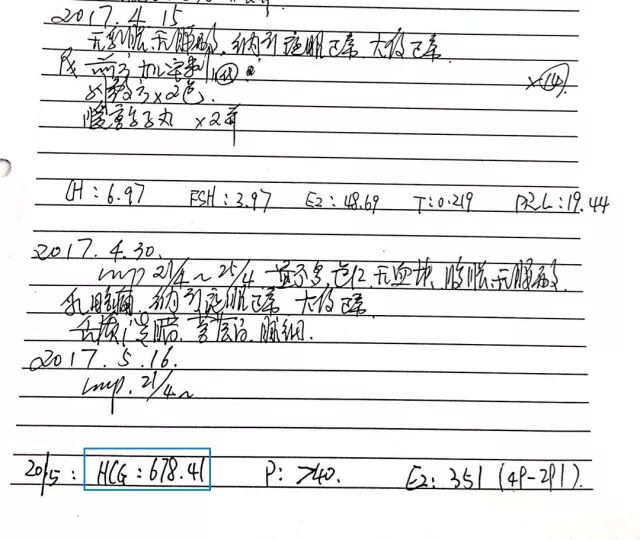 2017.4.15
无乳胀,无腰酸,纳可,夜眠正常,大便正常.
Rx 前方加 ×⑭
×2包.
暖宫孕子丸 ×2瓶
LH:6.97 FSH:3.97 E2:48.69 T:0.219 PRL:19.44
2017.4.30.
lmp 21/4~25/4 量 色红,无血块,腹胀,无腰酸,
乳 痛,纳可,夜眠正常,大便正常.
舌 脉细.
2017.5.16.
lmp.21/4~
20/5: HCG:678.41 P:>40. E2:351 (49-291).